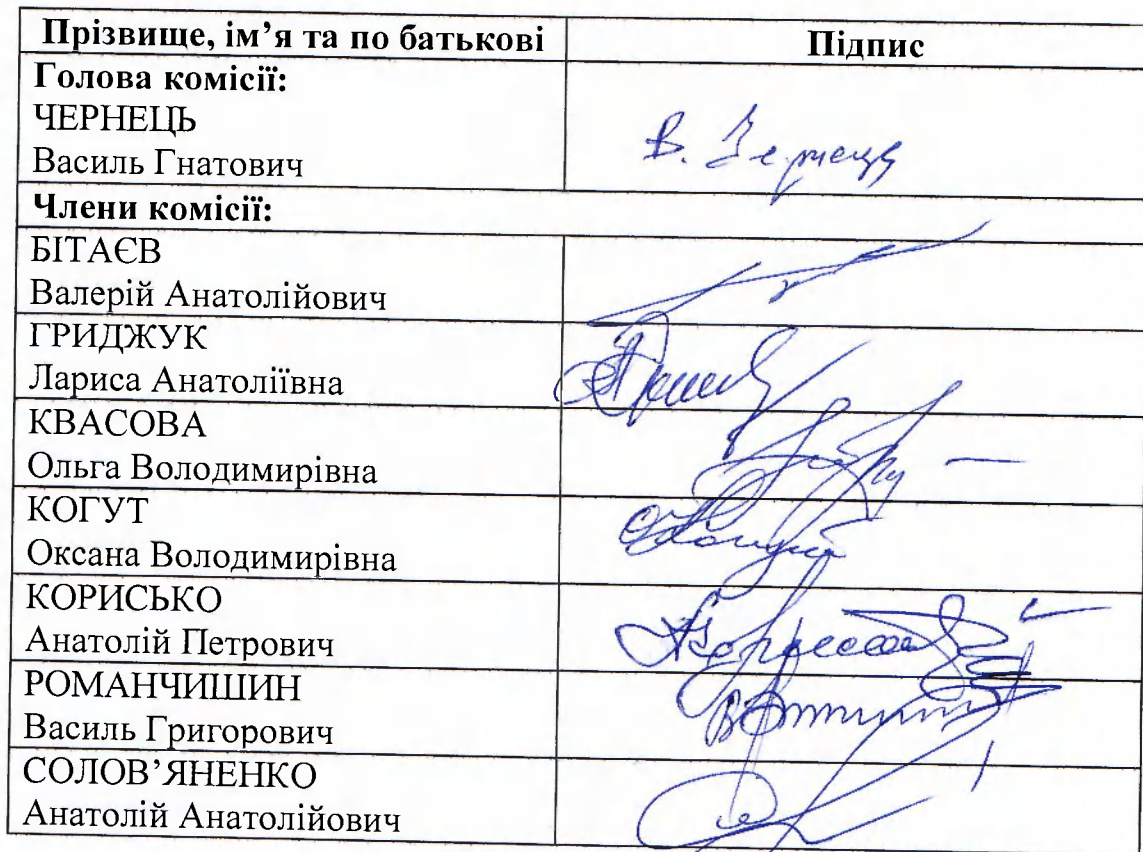 Прізвище, ім’я та по батькові Підпис
Голова комісії:
ЧЕРНЕЦЬ
Василь Гнатович
В. Чернець
Члени комісії:
БІТАЄВ
Валерій Анатолійович
ГРИДЖУК
Лариса Анатоліївна
КВАСОВА
Ольга Володимирівна
КОГУТ
Оксана Володимирівна
КОРИСЬКО
Анатолій Петрович
РОМАНЧИШИН
Василь Григорович
СОЛОВ’ЯНЕНКО
Анатолій Анатолійович